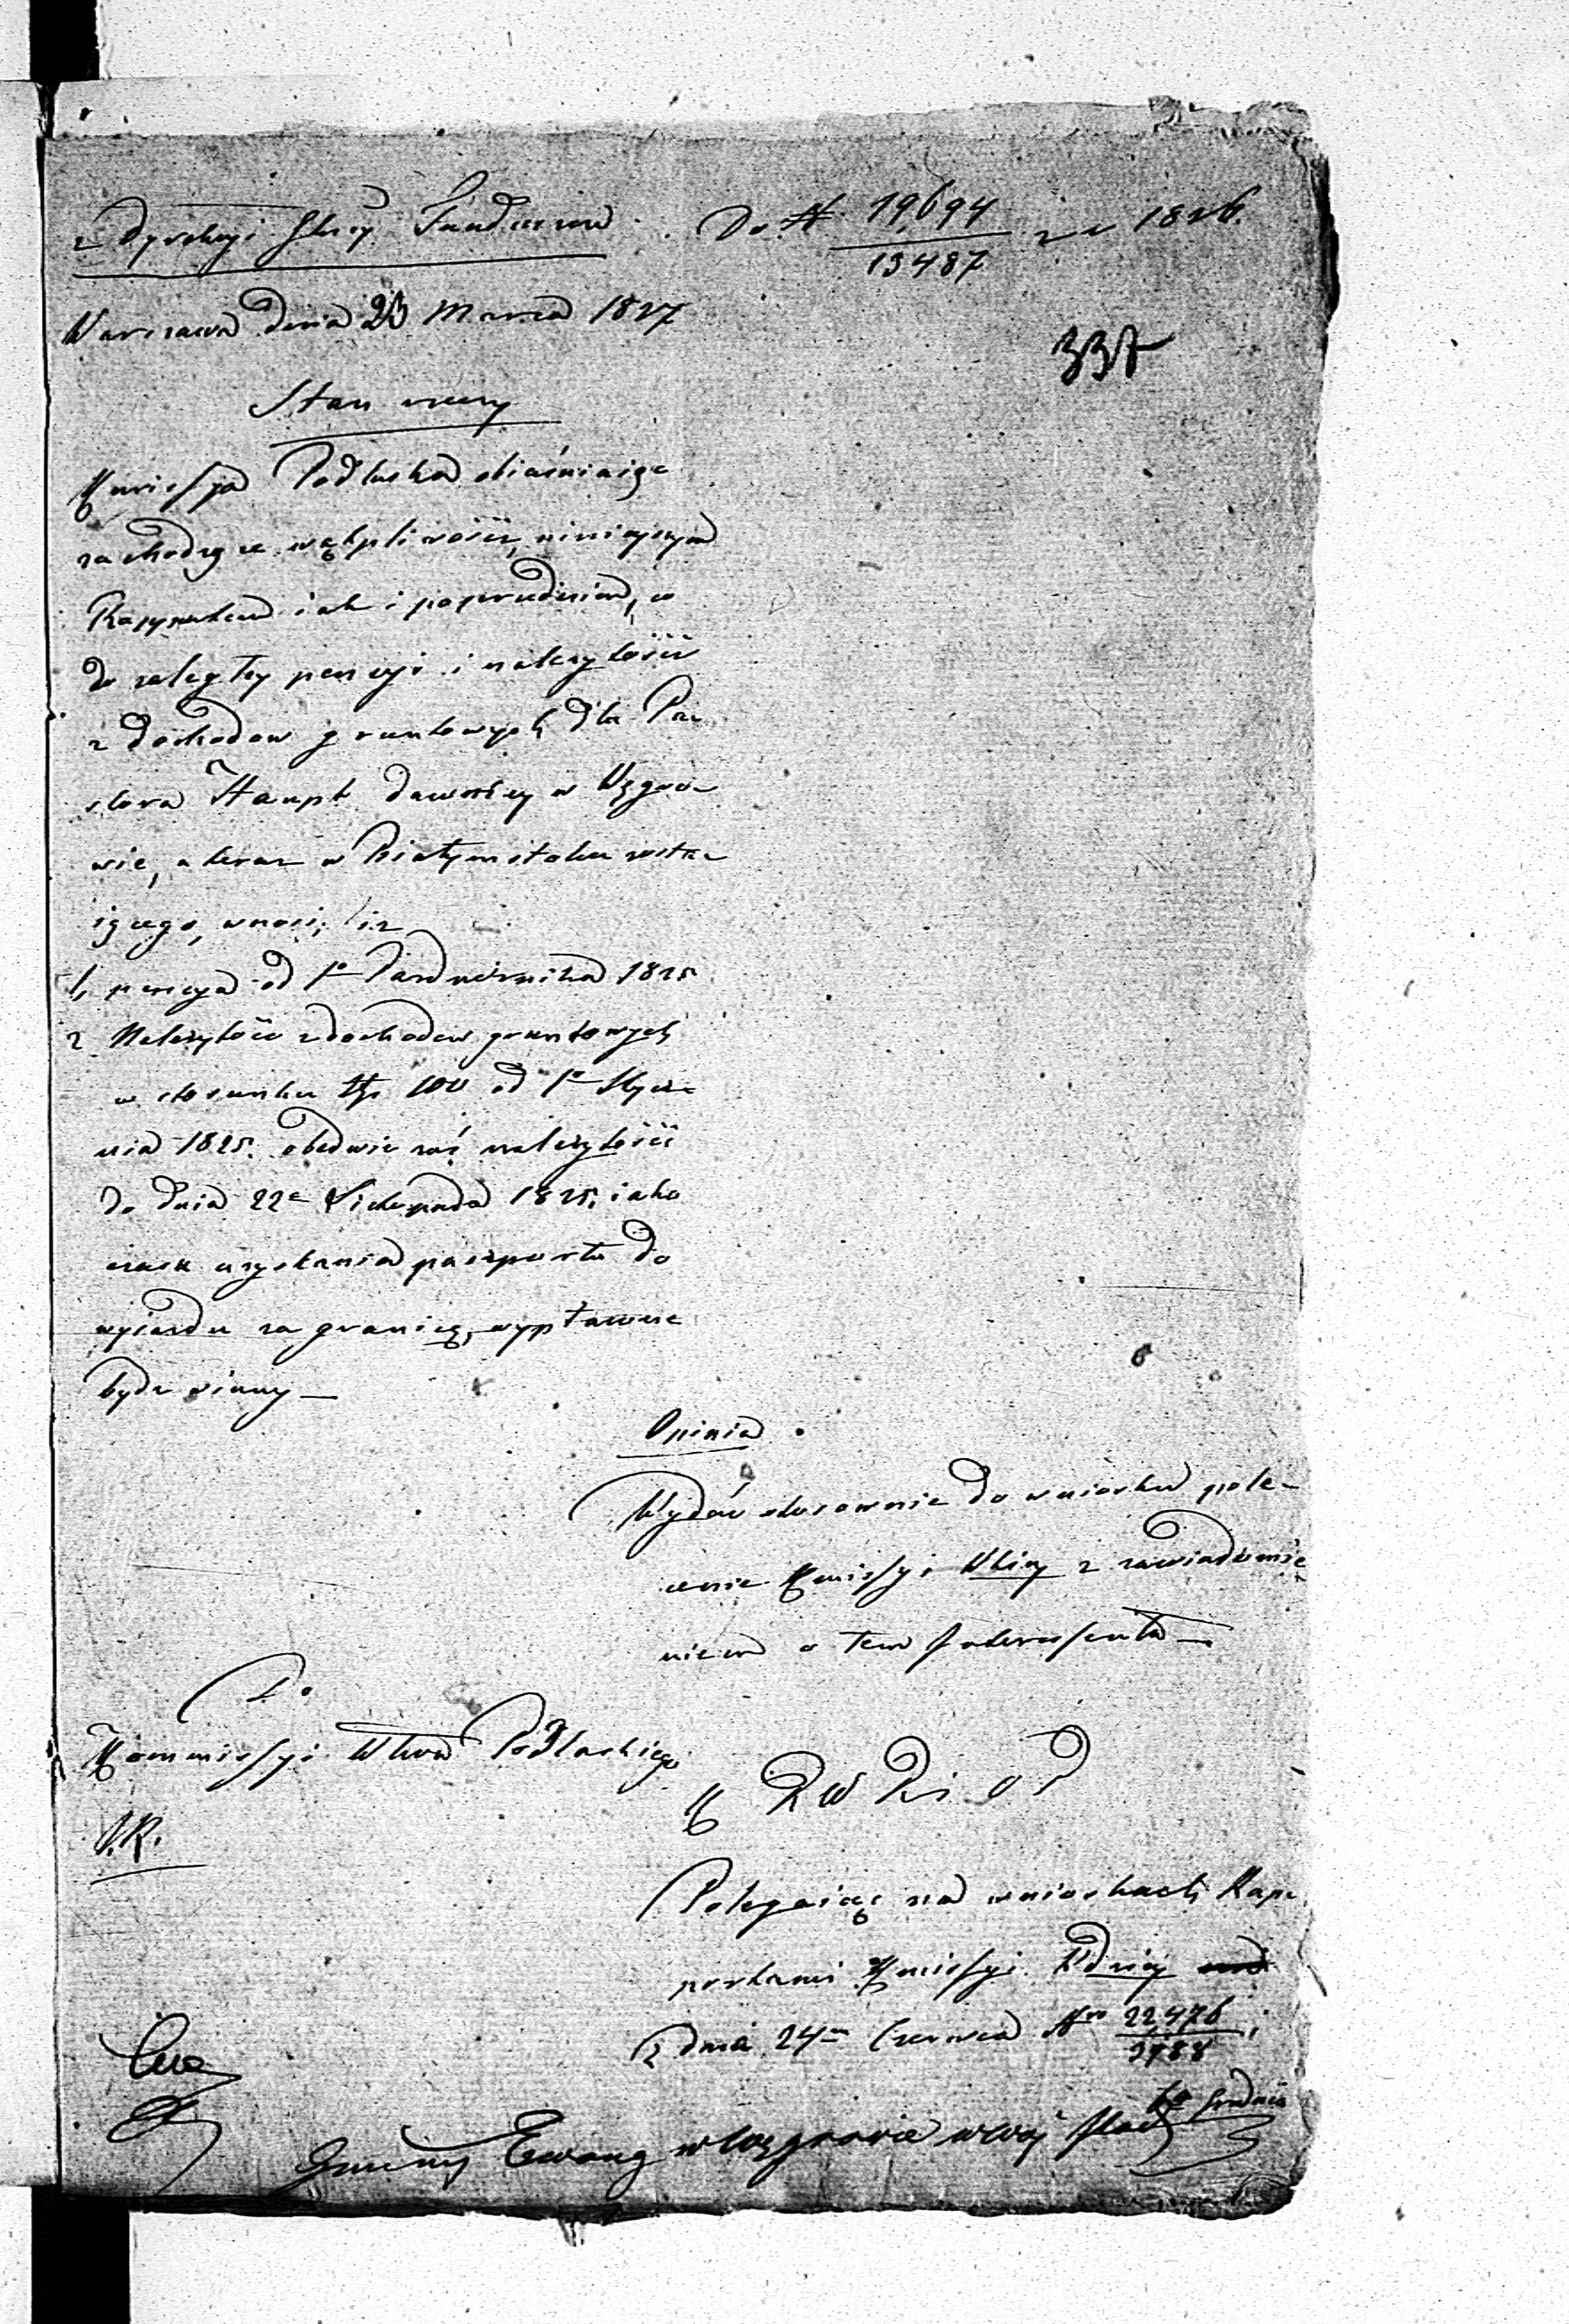 z Dyrekcyi Głney Funduszow Do N 19,694/13487 z r 1826.
Warszawa dnia 23 Marca 1827
337
Stan rzeczy
Kmissya Podlaska obiaśniaiąc
zachodzące wątpliwości, ninieyszym
Rapportem iak i poprzednim, co
do zaległey pensyi i należytości
z dochodow gruntowych dla Pa-
stora Haupt dawniey w Węgro-
wie, a teraz w Białymstoku zosta-
iącego, wnosi, iż
1, pensya od 1o Października 1825
2 Należytość z dochodow gruntowych
w stosunku Złp 100 od 1o Stycz-
nia 1825. obedwie zaś należytości
do dnia 22o Listopada 1825, iako
czasu uzyskania paszportu do
wyiazdu za granicę, wypłacone
bydź winny —
Opinia.
Wydać stosownie do wniosku pole-
cenie Kmissyi Wkiey z zawiadomie
niem o tem Interessenta —
Do
Kommissyi Wtwa Podlaskiego
K R W R i O P
J.R.
Polegaiąc na wnioskach Rap-
portami Kmissyi Wdzkiey
z dnia 24o Czerwca Nro 22,476/3788 i
6o Grudnia
Gminy Ewang w Węgrowie wwój Podl